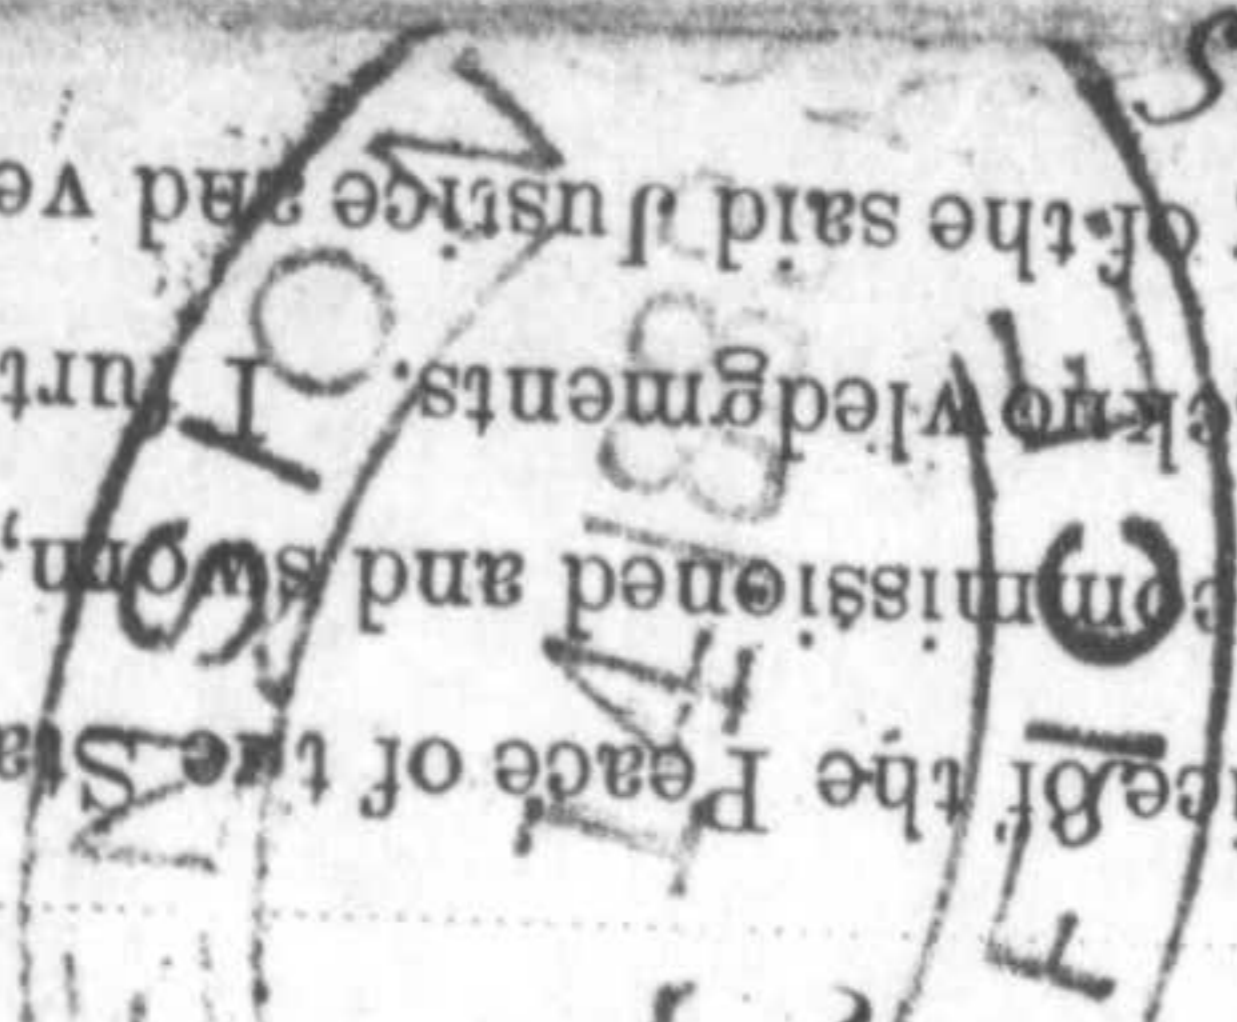 ice of the Peace of the Sta
commissioned and sworn,
cknowledgments. Furt
of the said Justice and ve
NSION
FICE
14
188